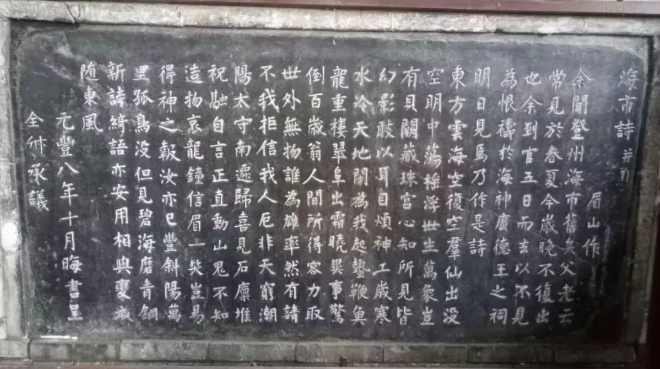 海市詩并引
眉山作
余聞登州海市舊矣父老云
常見於春夏今歲晚不復出
也余到官五日而去以不見
為恨禱於海神廣德王之祠
明日見焉乃作是詩
東方雲海空復空羣仙出没
空明中蕩搖浮世生萬象豈
有貝闕藏珠宫心知所見皆
幻影敢以耳目煩神工歲寒
水冷天地閉為我起蟄鞭魚
龍重樓翠阜出霜曉異事驚
倒百歲翁人間所得容力取
世外無物誰為雄率然有請
不我拒信我人厄非天窮潮
陽太守南遷歸喜見石廪堆
祝融自言正直動山鬼不知
造物哀龍鍾信眉一笑豈易
得神之報汝亦已豐斜陽萬
里孤鳥没但見碧海磨青銅
新詩綺語亦安用相與變滅
随東風
元豐八年十月晦書呈
全叔承議